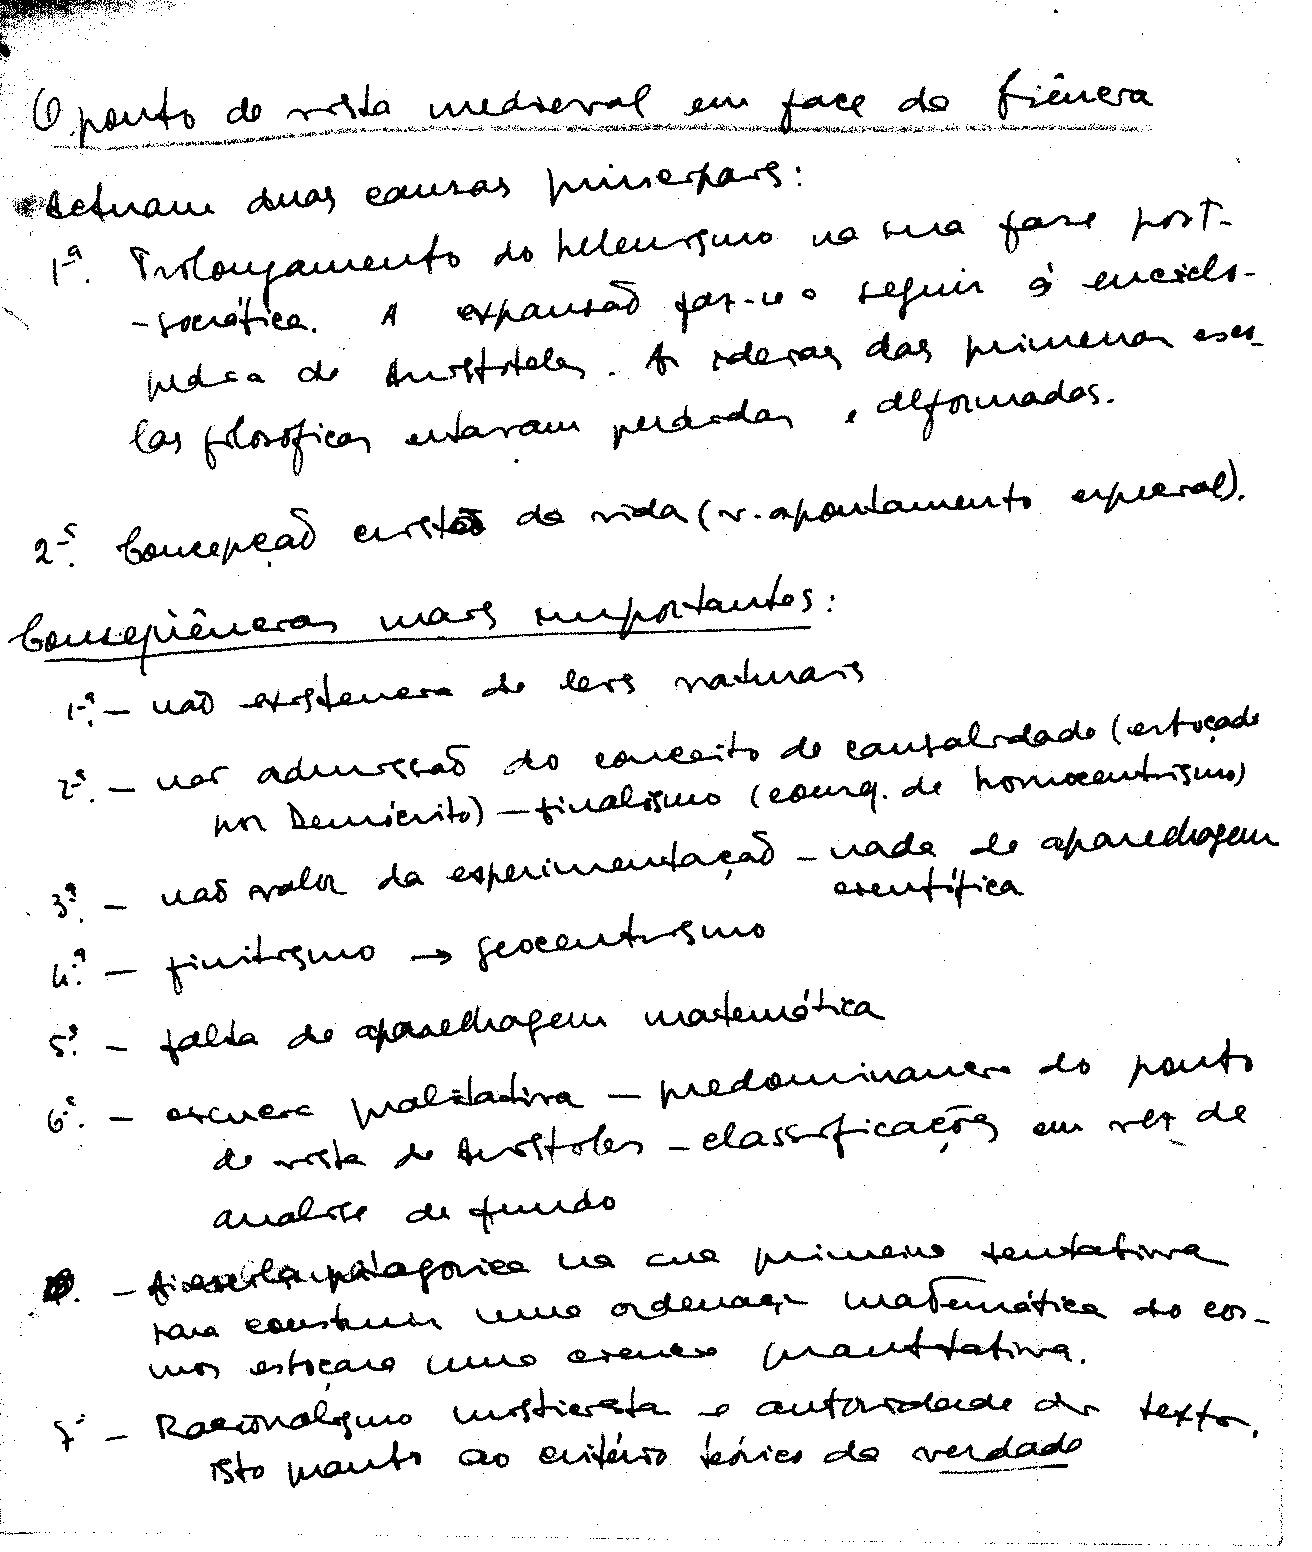 O ponto de vista medieval em face da Ciência
Actuam duas causas principais:
1ª. Prolongamento do helenismo na sua fase post-
-socrática. A expansão faz-se a seguir à enciclo-
pédica de Aristóteles. As ideias das primeiras esco-
las filosóficas estavam perdidas e deformadas.
2ª. Concepção cristã da vida (v. apontamento especial).
Consequências mais importantes:
1ª. - não existencia de leis naturais
2ª. - não admissão do conceito de causalidade (esboçado
por Demócrito) - finalismo (conseq. de homocentrismo)
3ª. - não valor da experimentação - nada de aparelhagem
científica
4ª. - finitismo → geocentrismo
5ª. - falta de aparelhagem matemática
6ª. - ciencia qualitativa - predominancia do ponto
de vista de Aristoteles - classificações em vez de
analise de fundo
- A escola pitagorica na sua primeira tentativa
para construir uma ordenação matemática do cos-
mos esboçara uma ciencia quantitativa.
7ª - Racionalismo misticista e autoridade dos textos,
isto quanto ao critério teórico da verdade